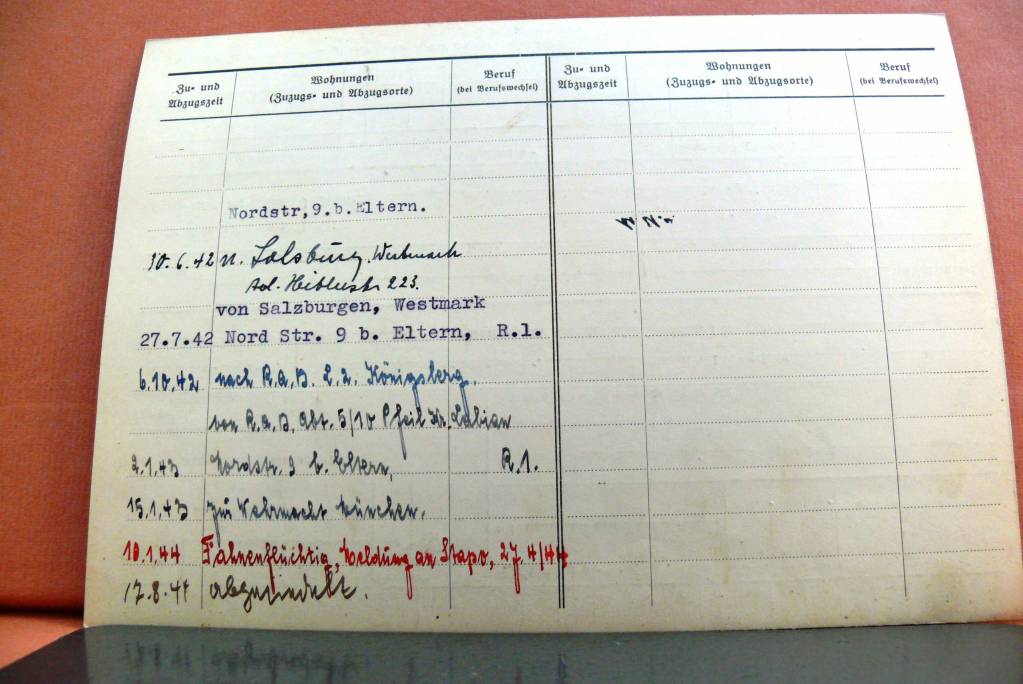 Zu- und Abzugszeit
Wohnungen
(Zuzugs- und Abzugsorte)
Beruf
(bei Berufswechsel)
Zu- und Abzugszeit
Wohnungen
(Zuzugs- und Abzugsorte)
Beruf
(bei Berufswechsel)
Nordstr,9.b.Eltern.
30.6.42 n. Salsburg. Westmark
223.
von Salzburgen, Westmark
27.7.42 Nord Str. 9 b. Eltern, R.l.
6.10.42 nach R.A.B. L.2. Königsberg.
von R.A.B. Abt. 5/10 Pfeil Kr. Labiau
2.1.43 Nordstr. 9 b. Eltern, R.1.
15.1.43 zur Wehrmacht München.
10.1.44 Fahnenflüchtig, Meldung an Stapo, 27.4/44
17.8.44 abgesiedelt.